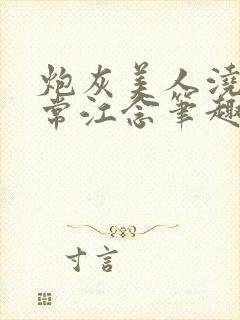 炮灰美人浇
常江念笔趣
寸言